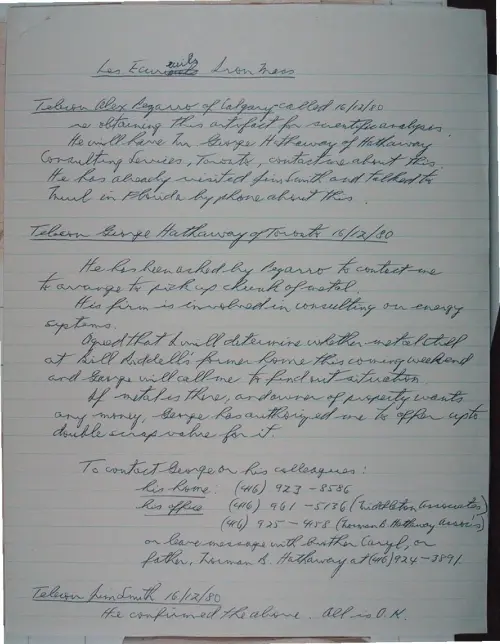 Les Ecureuils Iron Mess
Telecon Alex Pezarro of Calgary called 16/12/80
re obtaining this artifact for scientific analyses.
He will have Mr. George Hathaway of Hathaway
Consulting Services, Toronto, contact me about this.
He has already visited Jim Smith and talked to
in Florida by phone about this.
Telecon George Hathaway of Toronto 16/12/80
He has been asked by Pezarro to contact me
to arrange to pick up chunk of metal.
His firm is involved in consulting on energy
systems.
Agreed that I will determine whether metal still
at Bill Riddell's former home this coming weekend
and George will call me to find out situation.
If metal is there, and owner of property wants
any money, George has authorized me to offer up to
double scrap value for it.
To contact George or his colleagues:
his home: (416) 923-8586
his office (416) 961-5136 (Middleton Associates)
(416) 925- (Norman B. Hathaway Assoc's)
or leave message with brother Caryl, or
father, Norman B. Hathaway at (416) 924-3891.
Telecon Jim Smith 16/12/80
He confirmed the above. All is O.K.